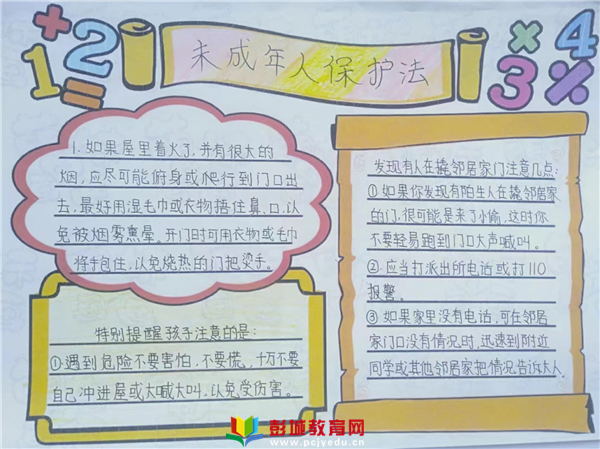 未成年人保护法
1. 如果屋里着火了,并有很大的
烟,应尽可能俯身或爬行到门口出
去,最好用湿毛巾或衣物捂住鼻、口,以
免被烟雾熏晕。开门时可用衣物或毛巾
将手包住,以免烧热的门把烫手。
特别提醒孩子注意的是:
①遇到危险不要害怕,不要慌,千万不要
自己冲进屋或大喊大叫,以免受伤害。
发现有人在撬邻居家门注意几点:
①如果你发现有陌生人在撬邻居家
的门,很可能是来了小偷,这时你
不要轻易跑到门口大声喊叫。
②.应当打派出所电话或打110
报警。
③如果家里没有电话,可在邻居
家门口没有情况时,迅速到附近
同学或其他邻居家把情况告诉大人。
1 + 2 =
× 4
3 %
彭城教育网
www.pcjyedu.cn